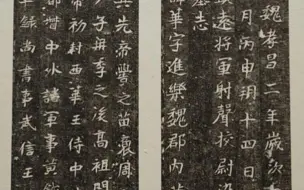 魏孝昌二年歲次
月丙申朔十四日
遠將軍射聲校尉
墓志
諱華字進樂魏郡內
其先帝嚳之苗裔周
子冉季之後高祖閔
帝初封西華王侍中
都督中外諸軍事黃鉞
錄尚書事武信王